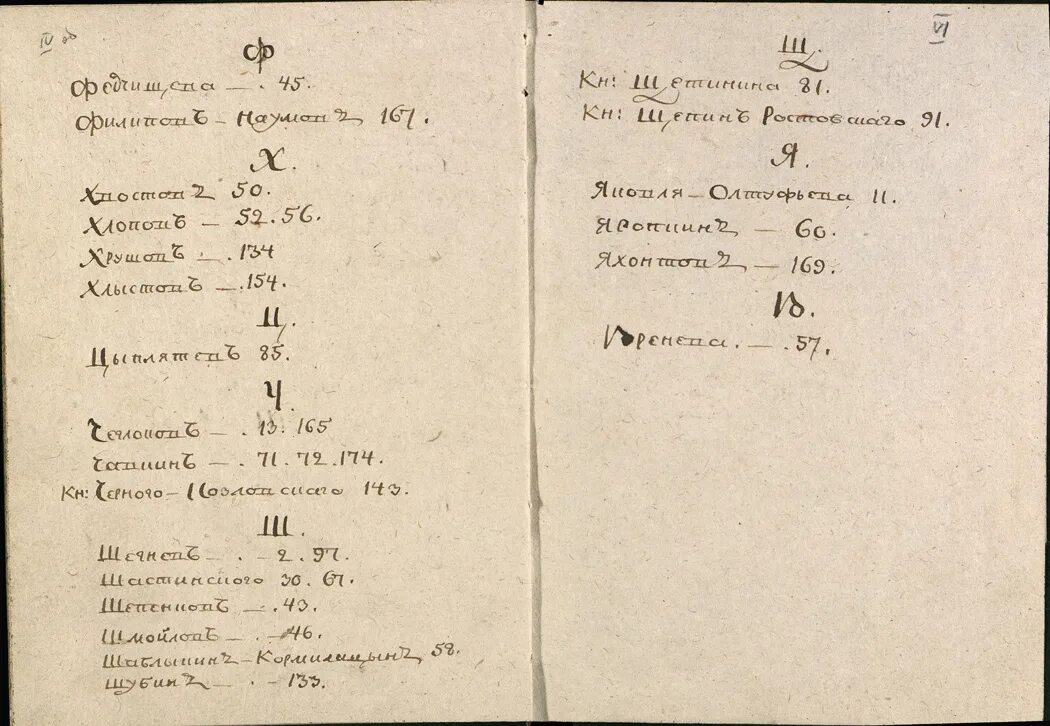 IV об
Ф
Федчищева — . 45.
Филиповъ — Наумовъ 167.
Х.
Хвостовъ 50.
Хлоповъ — 52. 56.
Хрущовъ — . 134
Хлыстовъ — . 154.
Ц.
Цыплятевъ 85.
Ч
Чеглоковъ — . 13. 165
Чапкинъ — . 71. 72. 174.
Кн: Черного — Козловскаго 143.
Ш.
Шетневъ — . — 2. 97.
Шастинского 30. 67.
Шепенковъ — . 43.
Шмойловъ — . — 46.
Шаблыкинъ — Кормилицынъ 58.
Шубинъ — . — 133.
VI
Щ.
Кн: Щетинина 81.
Кн: Щепинъ Ростовскаго 91.
Я.
Яковля — Олтуфьева 11.
Яропкинъ — 60.
Яхонтовъ — 169.
Ѵ.
Ѵренева. — . 57.